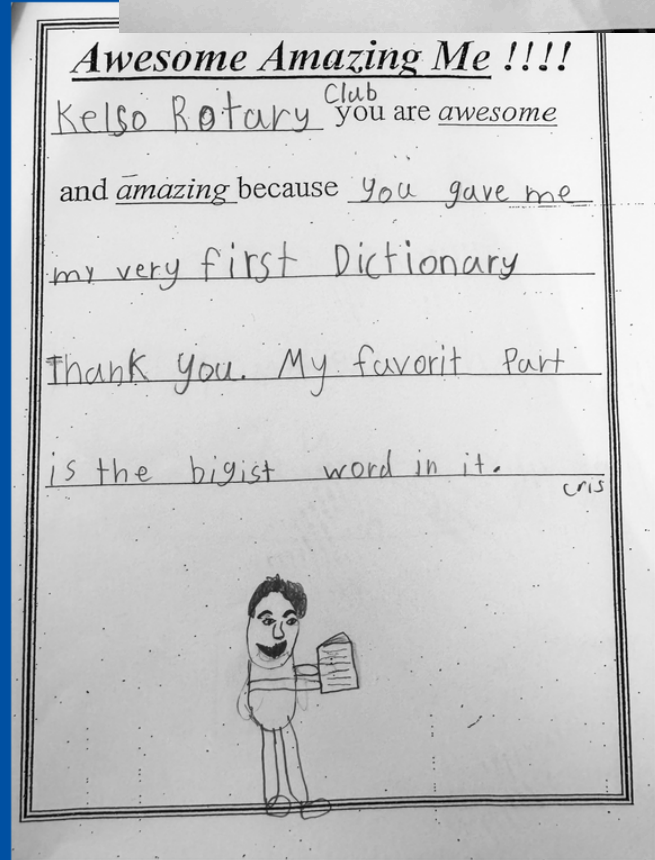 Awesome Amazing Me !!!!
Kelso Rotary Club you are awesome
and amazing because you gave me
my very first Dictionary
Thank you. My favorit Part
is the bigist word in it.
cris